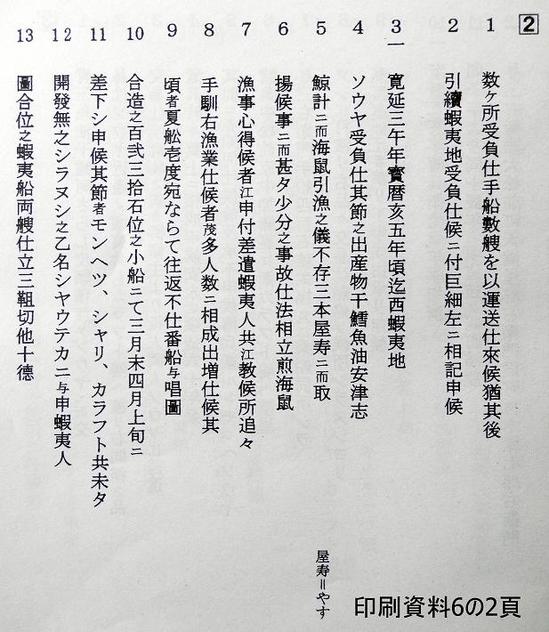 2
1 数ヶ所受負仕手船數艘を以運送仕來候猶其後
2 引續蝦夷地受負仕候ニ付巨細左ニ相記申候
3一 寛延三午年寳暦亥五年頃迄西蝦夷地
4 ソウヤ受負仕其節之出産物干鱈魚油安津志
5 鯨計ニ而海鼠引漁之儀不存三本屋寿ニ而取 屋寿=やす
6 揚候事ニ而甚タ少分之事故仕法相立煎海鼠
7 漁事心得候者江申付差遣蝦夷人共江教候所追々
8 手馴右漁業仕候者茂多人数ニ相成出増仕候其
9 頃者夏舩壱度宛ならて往返不仕番船与唱圖
10 合造之百弐三拾石位之小船ニて三月末四月上旬ニ
11 差下シ申候其節者モンヘツ、シャリ、カラフト共未タ
12 開發無之シラヌシ之乙名シヤウテカニ与申蝦夷人
13 圖合位之蝦夷船両艘仕立三靻切他十德
印刷資料6の2頁